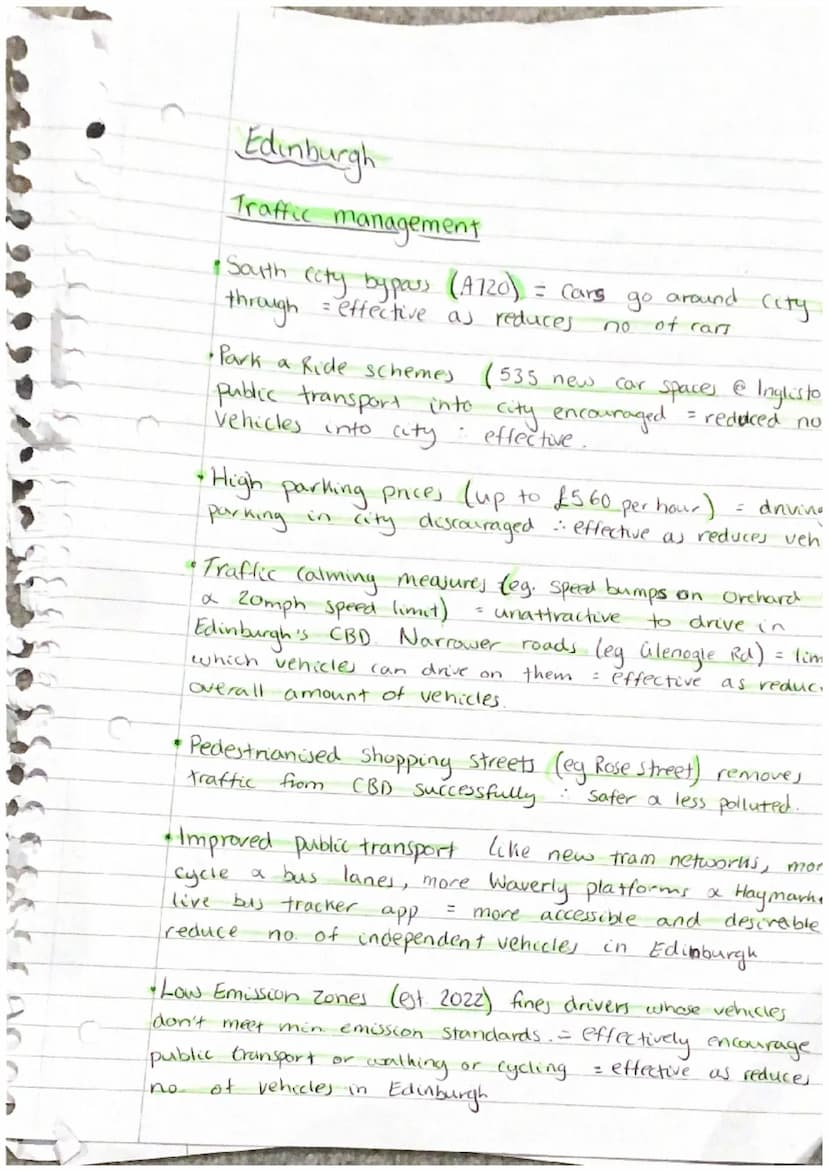 Edinburgh
Traffic management
• South city bypass (A720) = cars go around city
through = effective as reduces no of cars
• Park & Ride schemes (535 new car spaces @ Inglisto
public transport into city encouraged = reduced no
vehicles into city ∴ effective.
• High parking prices (up to £560 per hour) = driving
parking in city discouraged ∴ effective as reduces veh
• Traffic calming measures (eg. speed bumps on Orchard
& 20mph speed limit) = unattractive to drive in
Edinburgh's CBD. Narrower roads (eg Glenogle Rd) = lim
which vehicles can drive on them = effective as reduc
overall amount of vehicles.
• Pedestrianised shopping streets (eg Rose street) removes
traffic from CBD successfully ∴ safer & less polluted.
• Improved public transport like new tram networks, mor
cycle & bus lanes, more Waverly platforms & Haymark
live bus tracker app = more accessible and desirable
reduce no. of independent vehicles in Edinburgh
• Low Emission Zones (est 2022) fines drivers whose vehicles
don't meet min emission standards. = effectively encourage
public transport or walking or cycling = effective as reduces
no. of vehicles in Edinburgh